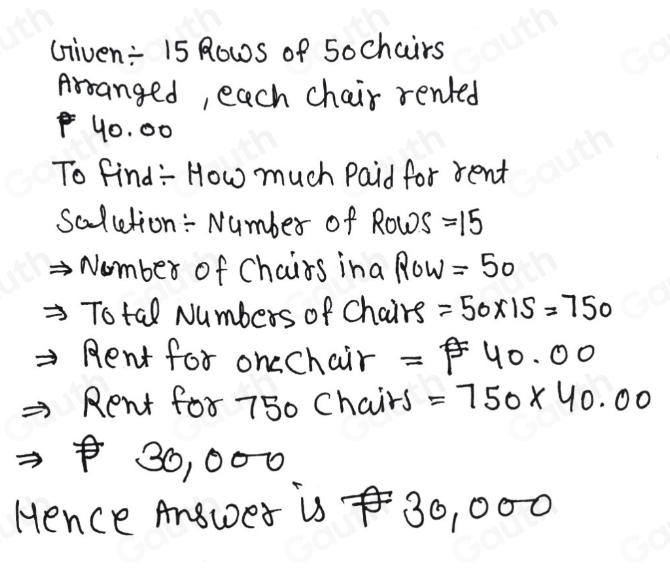 Given÷ 15 Rows of 50 chairs
Arranged, each chair rented
₱ 40.00
To find÷ How much Paid for rent
Solution÷ Number of Rows =15
⇒ Number of Chairs in a Row = 50
⇒ Total Numbers of Chairs = 50×15 = 750
⇒ Rent for one Chair = ₱ 40.00
⇒ Rent for 750 Chairs = 750 × 40.00
⇒ ₱ 30,000
Hence Answer is ₱ 30,000